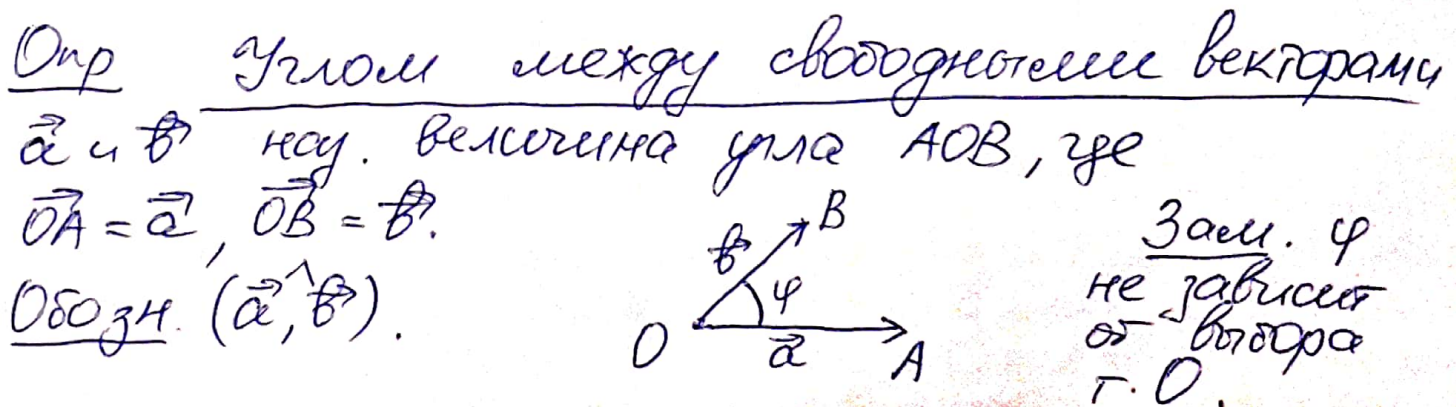 Опр Углом между свободными векторами
a⃗ и b⃗ наз. величина угла AOB, где
O͞A⃗ = a⃗, O͞B⃗ = b⃗.
Обозн. (a⃗,^b⃗).
B
b⃗
φ
O
a⃗
A
Зам. φ
не зависит
от выбора
т. O.